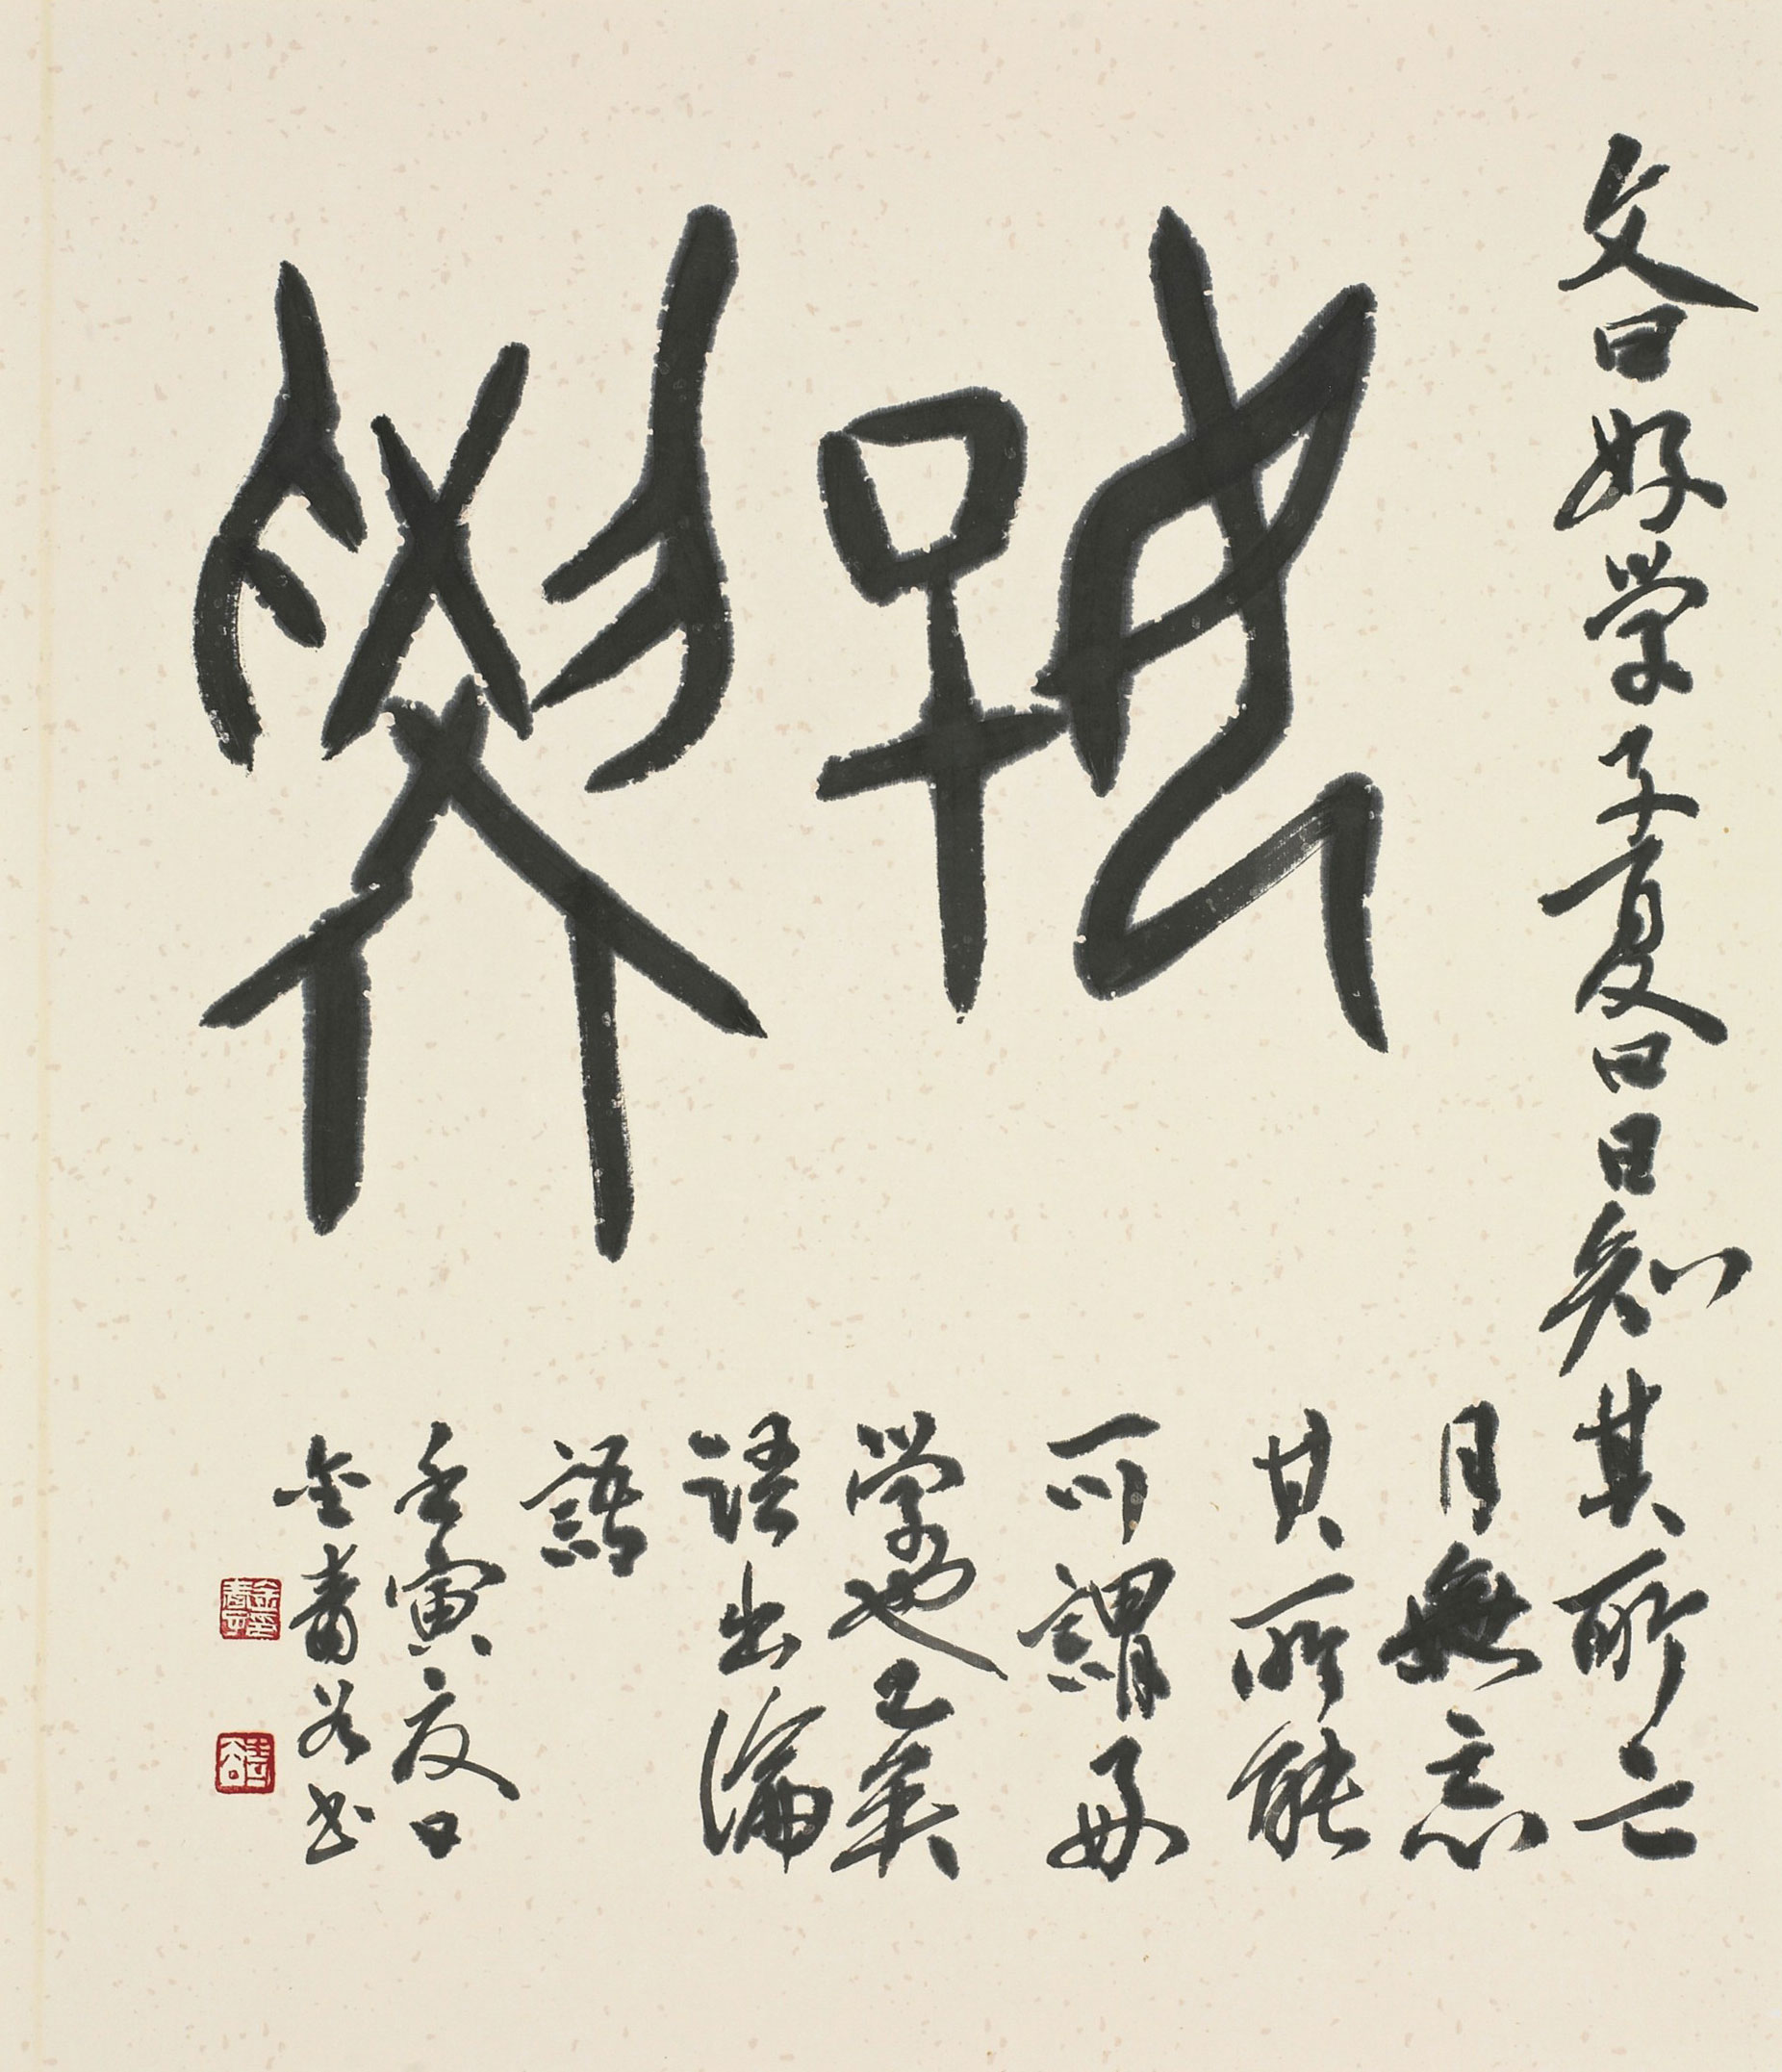 好學
文曰好学子夏曰日知其所亡
月無忘
其所能
可謂好
学也已矣
語出論
語
壬寅夏日
金书